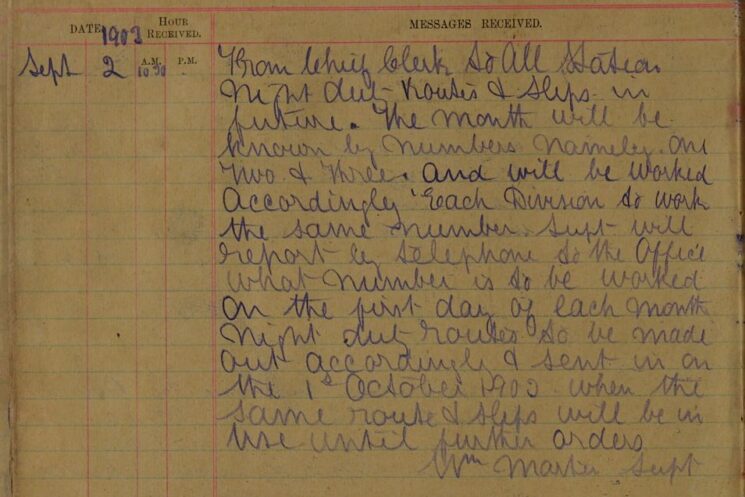 DATE 1903 HOUR RECEIVED. MESSAGES RECEIVED.
Sept 2 A.M. 10 30 P.M. From Chief Clerk to All Station
Night duty Routes & slips in
future. The month will be
known by numbers Namely. One
Two & Three. And will be worked
Accordingly Each Division to work
the same number. Supt will
report by telephone to the Office
what number is to be worked
on the first day of each month
Night duty routes to be made
out accordingly & sent in on
the 1st October 1903 when the
same route & slips will be in
use until further orders
Wm Supt